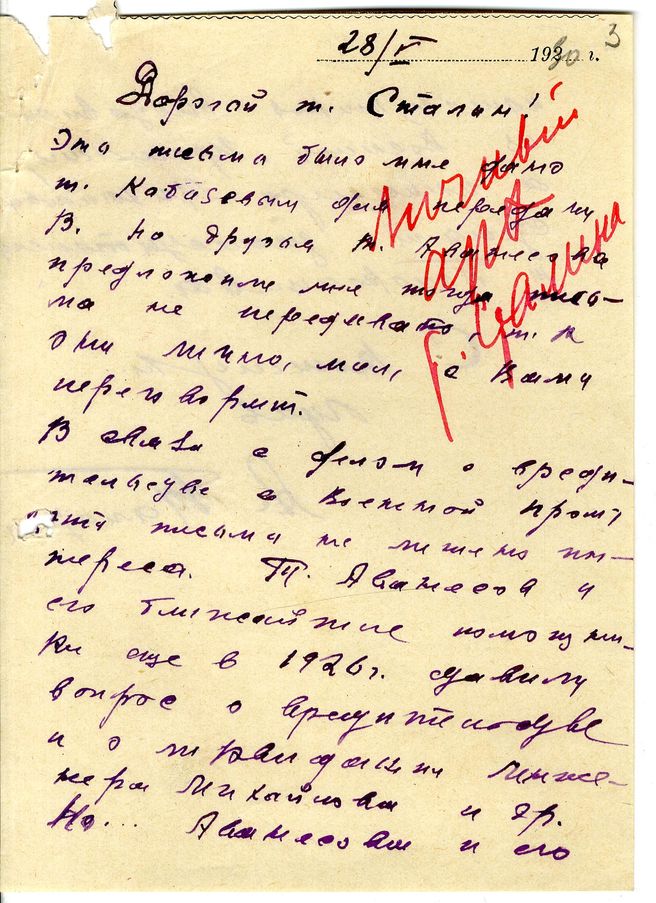 28/V 1930 г.
3
Дорогой т. Сталин!
Эта письма было мне дано
т. Кабасовым для передачи
В. но друзья т. Аванесова
предложили мне тогда пись-
ма не передавать, т. к
они лично, мол, с Вами
переговорят.
В связи с делом о вреди-
тельстве в Военной пром.
эти письма не лишены ин-
тереса. Т. Аванесов и
его ближайшие помощни-
ки еще в 1926 г. ставили
вопрос о вредительстве
и о ликвидации инже-
нера Михайлова и др.
Но... Аванесова и его
личный
арх
т. Сталина